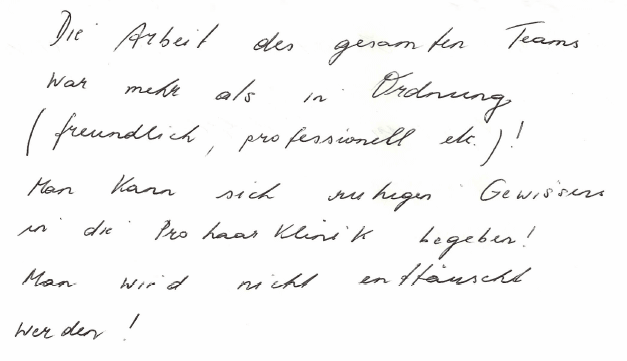 Die Arbeit des gesamten Teams
war mehr als in Ordnung
(freundlich, professionell etc.)!
Man kann sich ruhigen Gewissens
in die Pro haar Klinik begeben!
Man wird nicht enttäuscht
werden!